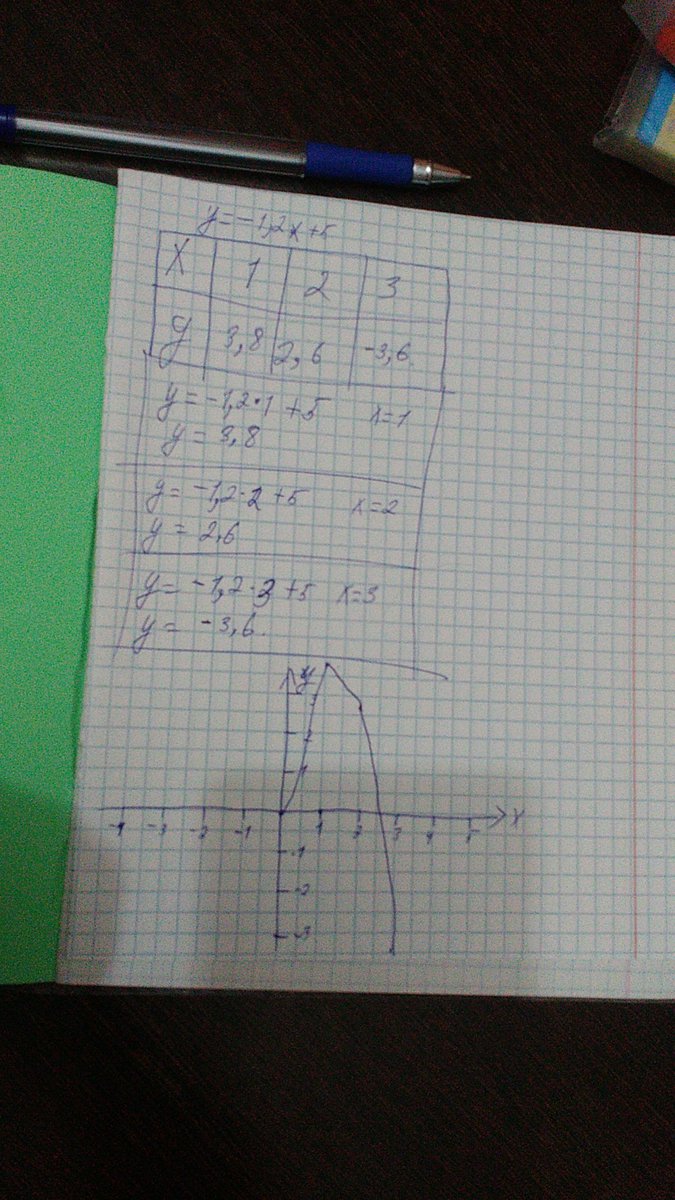 y=-1,2x+5
X 1 2 3
y 3,8 2,6 -3,6
y=-1,2·1+5 x=1
y=3,8
y=-1,2·2+5 x=2
y=2,6
y=-1,2·3+5 x=3
y=-3,6.
y
3
2
1
-4 -3 -2 -1 1 2 3 4 5 X
-1
-2
-3